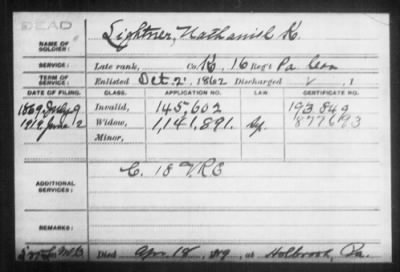 DEAD
NAME OF SOLDIER: Lightner, Nathaniel K.
SERVICE: Late rank, Co. K, 16 Reg't Pa Cav
TERM OF SERVICE: Enlisted Oct 2, 1862 Discharged , 1
DATE OF FILING. CLASS. APPLICATION NO. LAW CERTIFICATE NO.
1869 July 9 Invalid, 145,602 193.849
1919 June 2 Widow, 1,141,891. 877693
Minor,
ADDITIONAL SERVICES: C. 18 VRC
REMARKS:
Died Apr 18, 1919, at Holbrook, Pa.